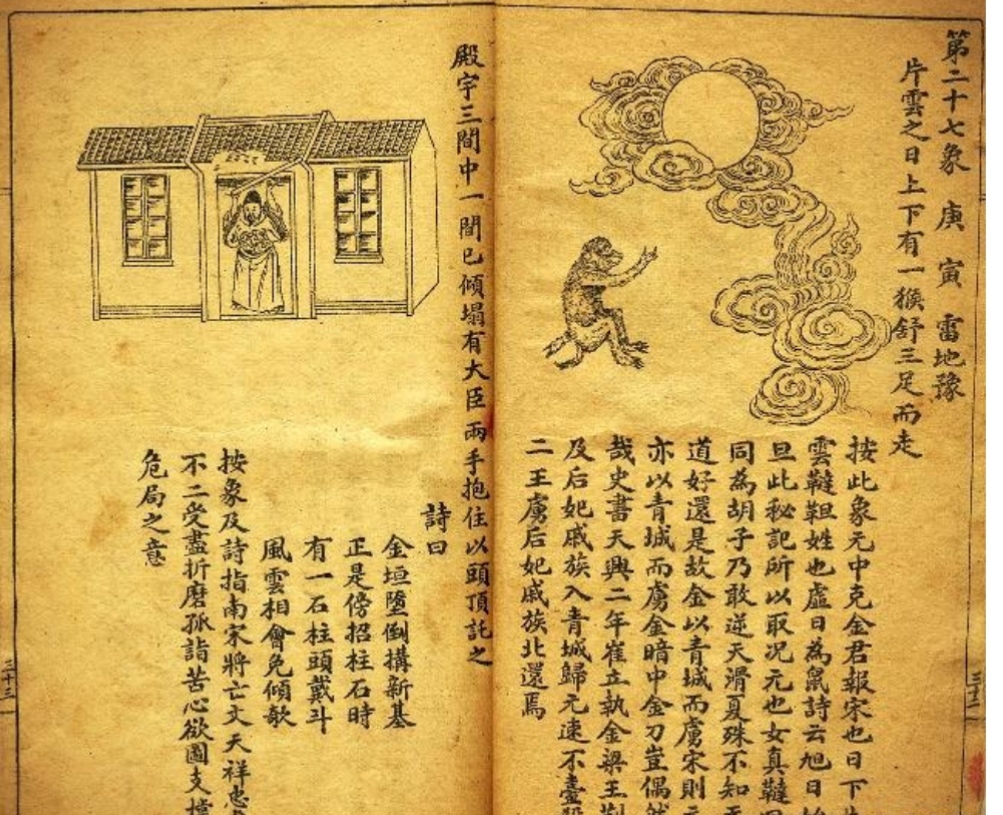 第二十七象 庚寅 雷地豫
片雲之日上下有一猴舒三足而走
按此象元中克金君報宋也日下
雲韃靼姓也虛日為鼠詩云旭日始
旦此秘記所以取況元也女真韃
同為胡子乃敢逆天滑夏殊不知
道好還是故金以青城而虜宋則
亦以青城而虜金暗中金刀豈偶然
哉史書天興二年崔立執金梁王荊
及后妃戚族入青城歸元速不臺
二王虜后妃戚族北還焉
三十二
殿宇三間中一間已傾塌有大臣兩手抱住以頭頂託之
詩曰
金垣墮倒搆新基
正是傍招柱石時
有一石柱頭戴斗
風雲相會免傾欹
按象及詩指南宋將亡文天祥忠
不二受盡折磨孤詣苦心欲圖支撐
危局之意
三十三